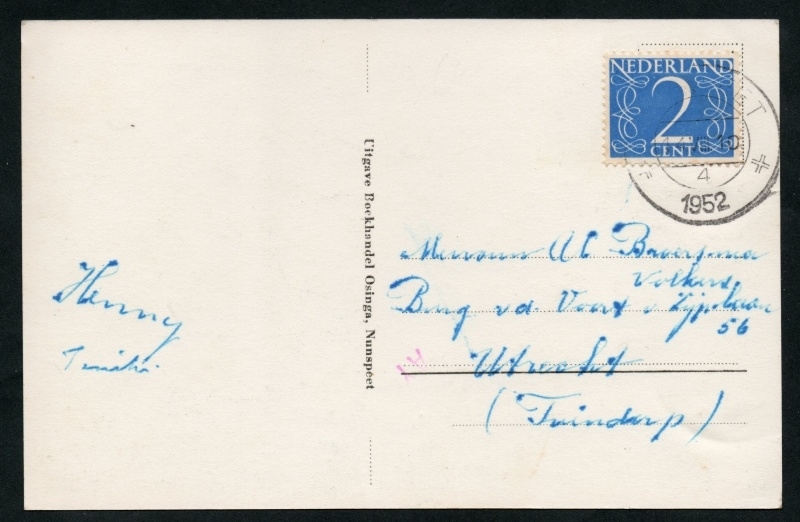 NEDERLAND
2
CENT
4
1952
Uitgave Boekhandel Osinga, Nunspeet
Henny
Mevrouw A C Boersma
Volkers
Burg v.d. Voort v Zijplaan
56
Utrecht
(Tuindorp)